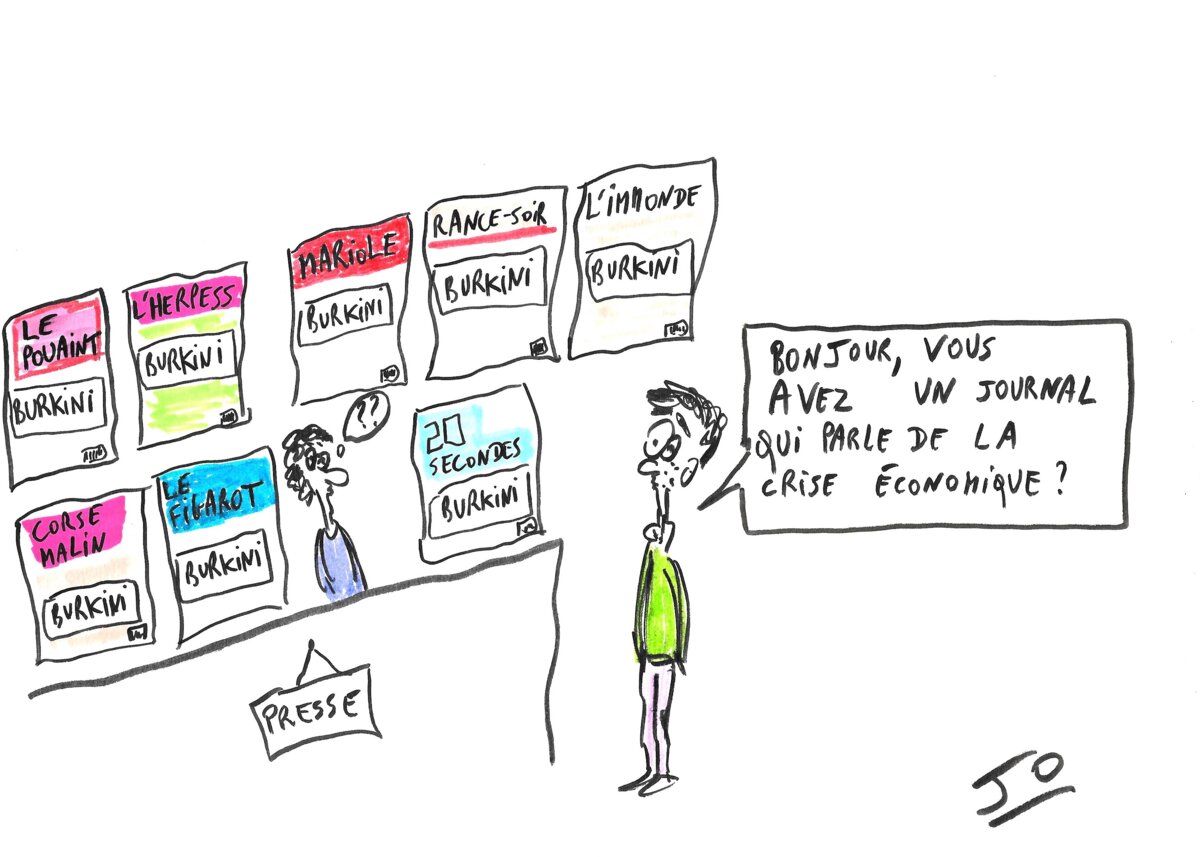 LE
POUAINT
BURKINI
L'HERPESS
BURKINI
MARIOLE
BURKINI
RANCE-SOIR
BURKINI
L'IMMONDE
BURKINI
CORSE
MALIN
BURKINI
LE
FIGAROT
BURKINI
??
20
SECONDES
BURKINI
BONJOUR, VOUS
AVEZ UN JOURNAL
QUI PARLE DE LA
CRISE ÉCONOMIQUE ?
PRESSE
JO